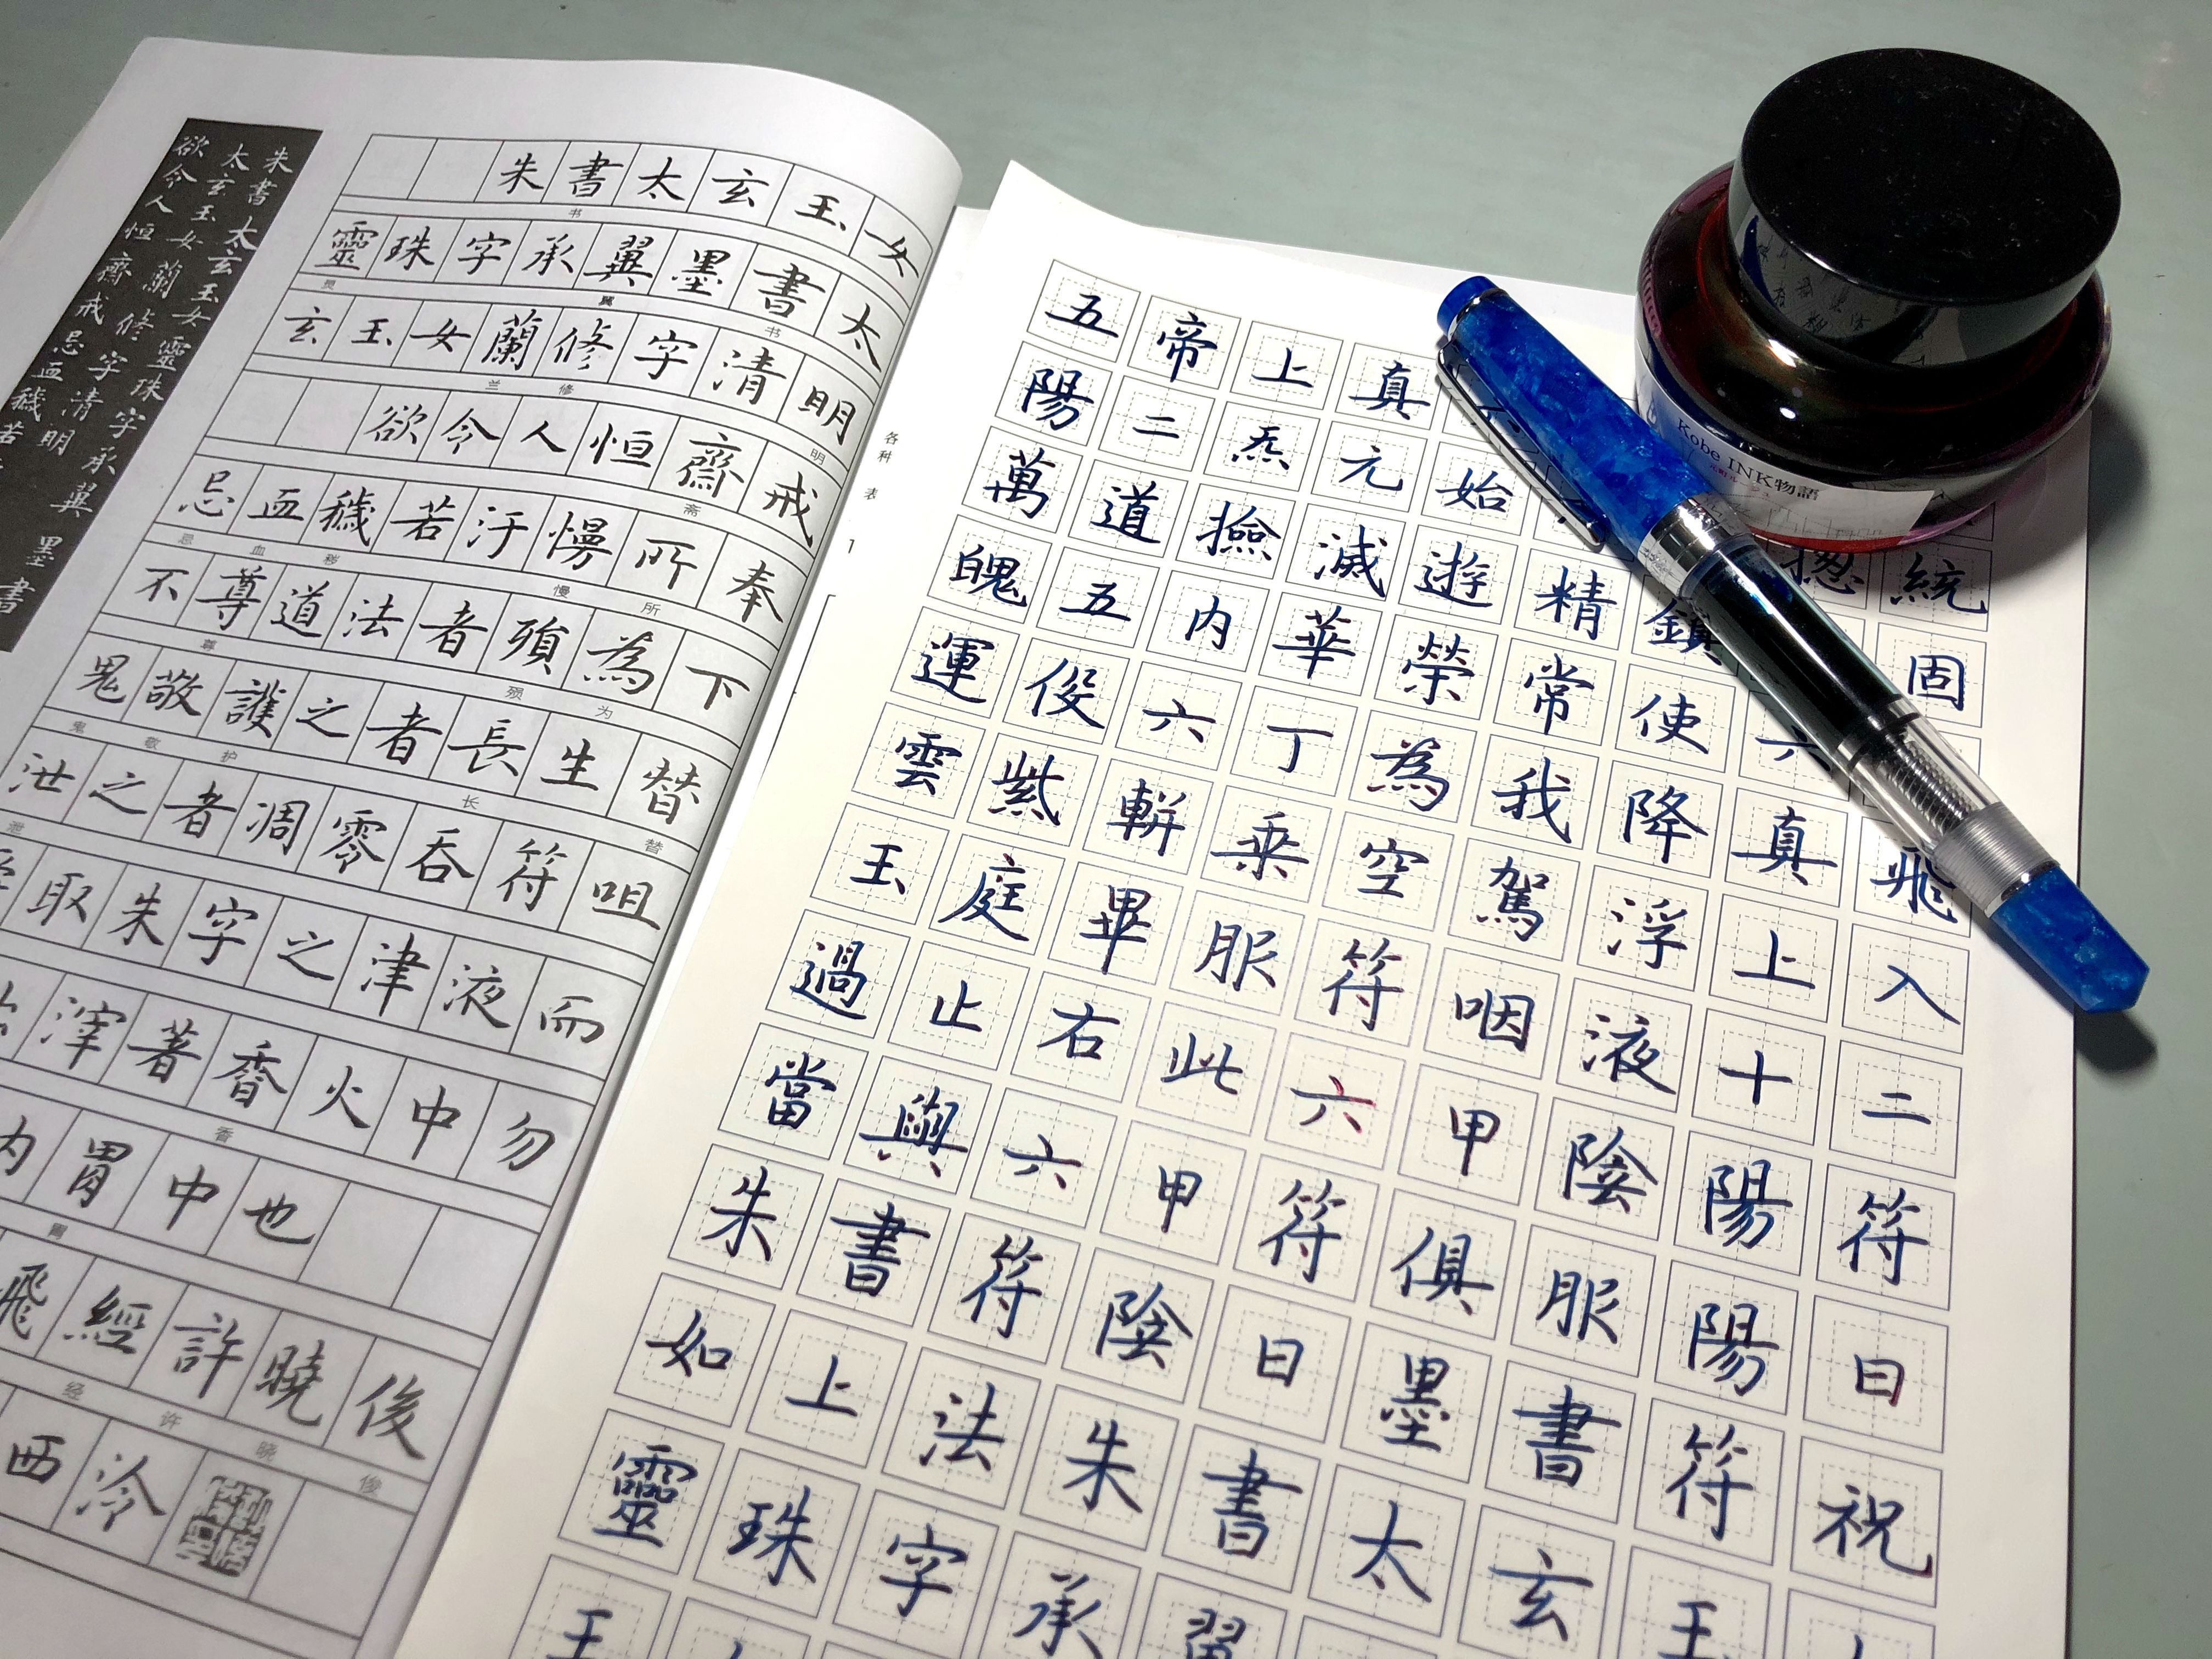 朱書太玄玉女靈珠字承翼 墨書
太玄玉女蘭修字清明
欲令人恒齋戒忌血穢若
朱書太玄玉女
书
靈珠字承翼墨書太
灵 翼 书
玄玉女蘭修字清明
兰 修 明
欲令人恒齋戒
斋
忌血穢若汙慢所奉
忌 血 秽 慢 所
不尊道法者須為下
尊 须 为
鬼敬護之者長生替
鬼 敬 护 长 替
泄之者凋零吞符咀
泄
取朱字之津液而
滓著香火中勿
香
内胃中也
胃
飛經許曉俊
经 许 晓 俊
西泠
各种
表
五帝上真
陽二炁元始
萬道撿滅遊精鎖揔統
魄五内華榮常使六固
運俊六丁為我降真飛
雲紫軿乘空駕浮上入
玉庭畢服符咽液十二
過止右此六甲陰陽符
當與六甲符俱服陽日
朱書符陰日墨書符祝
如上法朱書太玄玉
靈珠字承
Kobe INK物語